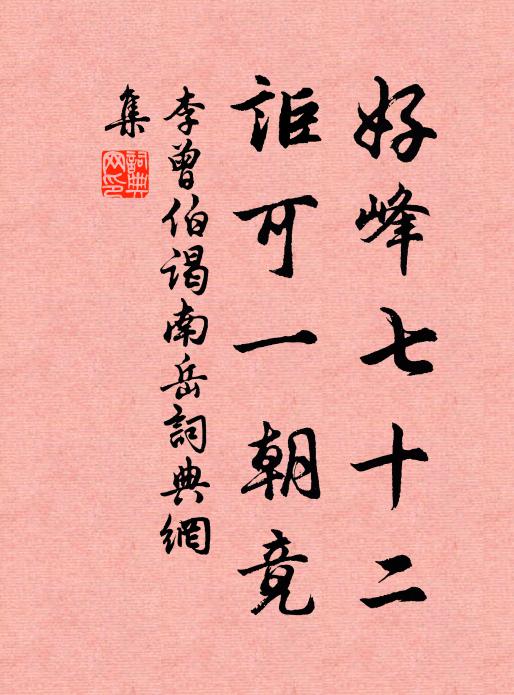 好峰七十二
詎可一朝竟
李曾伯謁南岳詞典網
集
詞典
网印